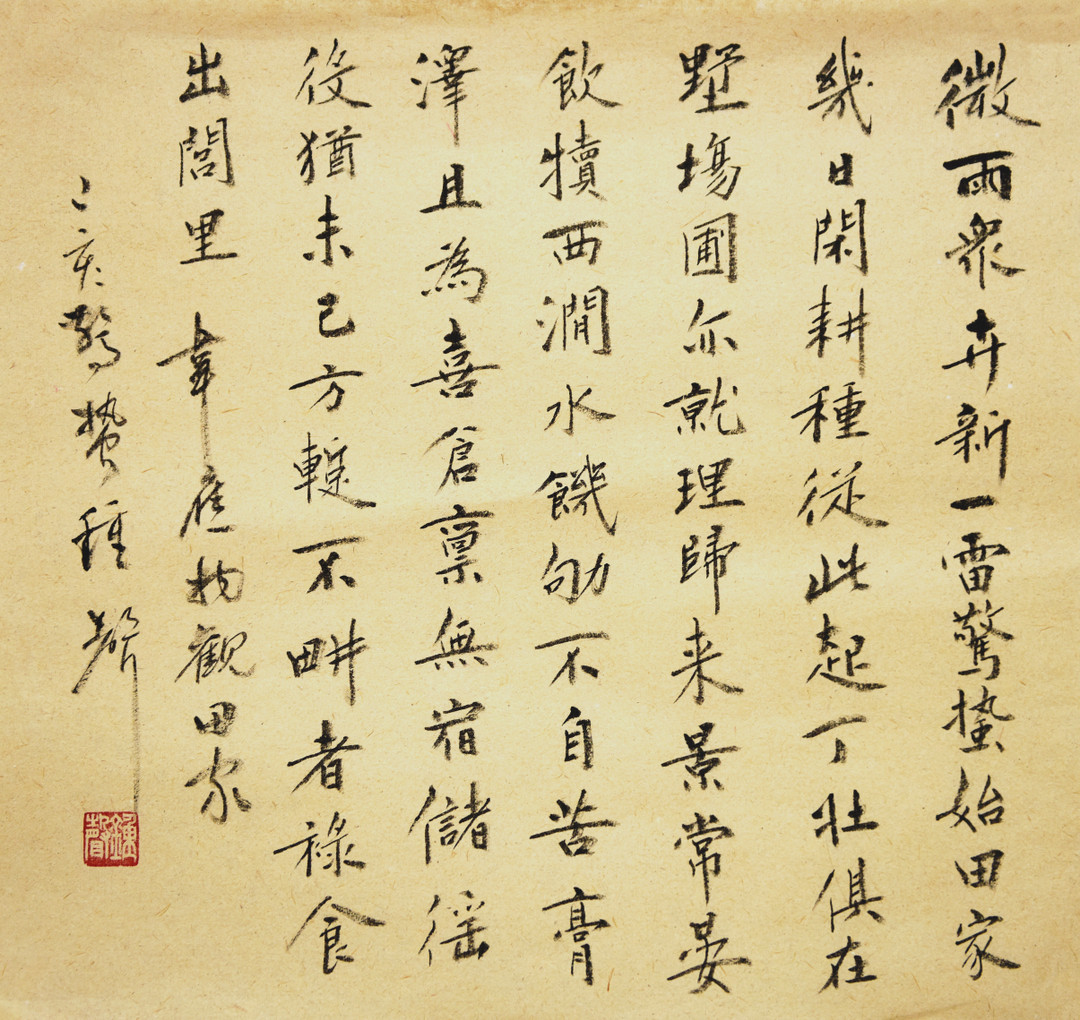 微雨眾卉新一雷驚蟄始田家
幾日閑耕種從此起丁壯俱在
墅塲圃亦就理歸来景常晏
飲犢西澗水饑劬不自苦膏
澤且為喜倉稟無宿儲徭
役猶未已方不畊者祿食
出閭里 韋應物觀田家
亥驚蟄鍾聲
鍾聲